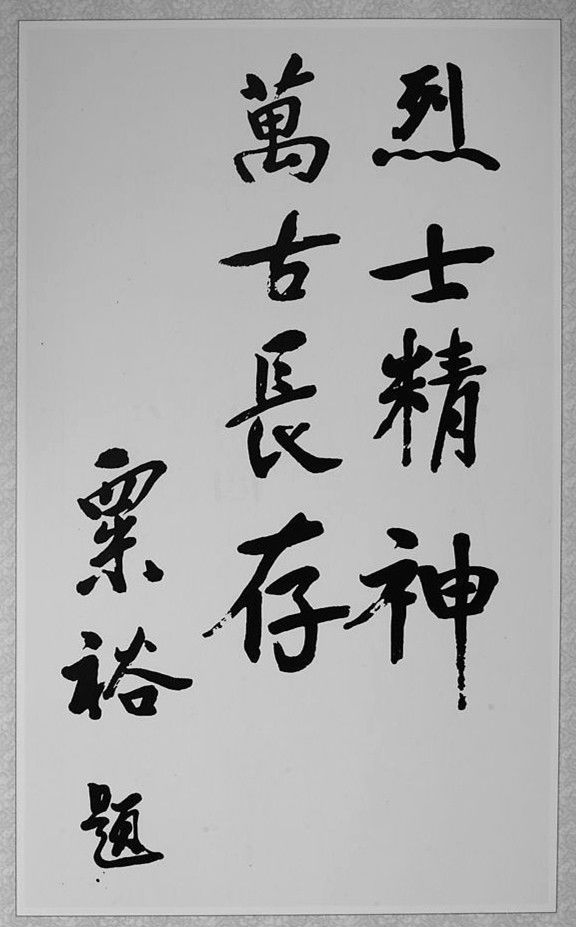 烈士精神
萬古長存
粟裕題